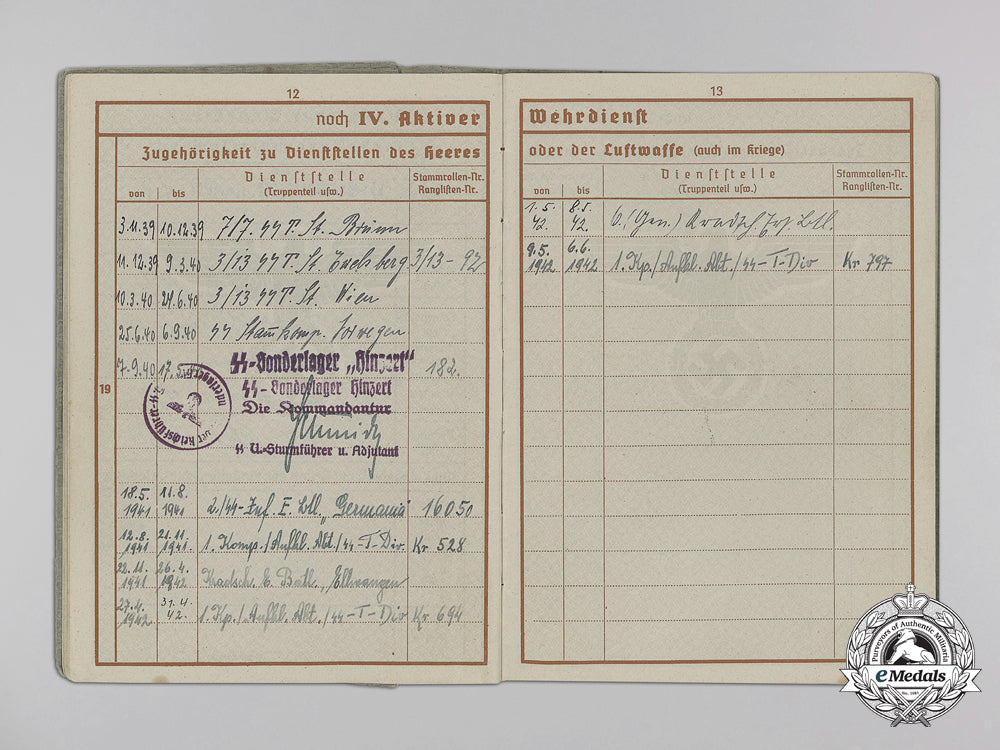 12
noch IV. Aktiver
Zugehörigkeit zu Dienststellen des Heeres
von bis Dienststelle (Truppenteil usw.) Stammrollen-Nr. Ranglisten-Nr.
3.11.39 10.12.39 7/7. SS T. St. Brünn
11.12.39 9.3.40 3/13 SS T. St. 3/13-92
10.3.40 24.6.40 3/13 SS T. St. Wien
25.6.40 6.9.40 SS Norwegen
19 7.9.40 17.5. SS-Sonderlager „Hinzert" 182.
SS-Sonderlager Hinzert
Die Kommandantur
SS U.-Sturmführer u. Adjutant
18.5. 1941 11.8. 1941 2./SS-Inf. E. Btl. „Germania" 16050
12.8. 1941 21.11. 1941. 1. Komp./Aufkl. Abt./SS-T-Div. Kr 528
22.11. 1941 26.4. 1942 Kradsch. E. Batl., Ellwangen
27.4. 1942 31.4. 42. 1. Kp./Aufkl. Abt./SS-T-Div Kr 694
13
Wehrdienst
oder der Luftwaffe (auch im Kriege)
von bis Dienststelle (Truppenteil usw.) Stammrollen-Nr. Ranglisten-Nr.
1.5. 42. 8.5. 42. 6. (Gen.) Kradsch. Ers. Btl.
9.5. 1942 6.6. 1942 1. Kp./Aufkl. Abt./SS-T-Div Kr 797
Purveyors of Authentic Militaria
eMedals